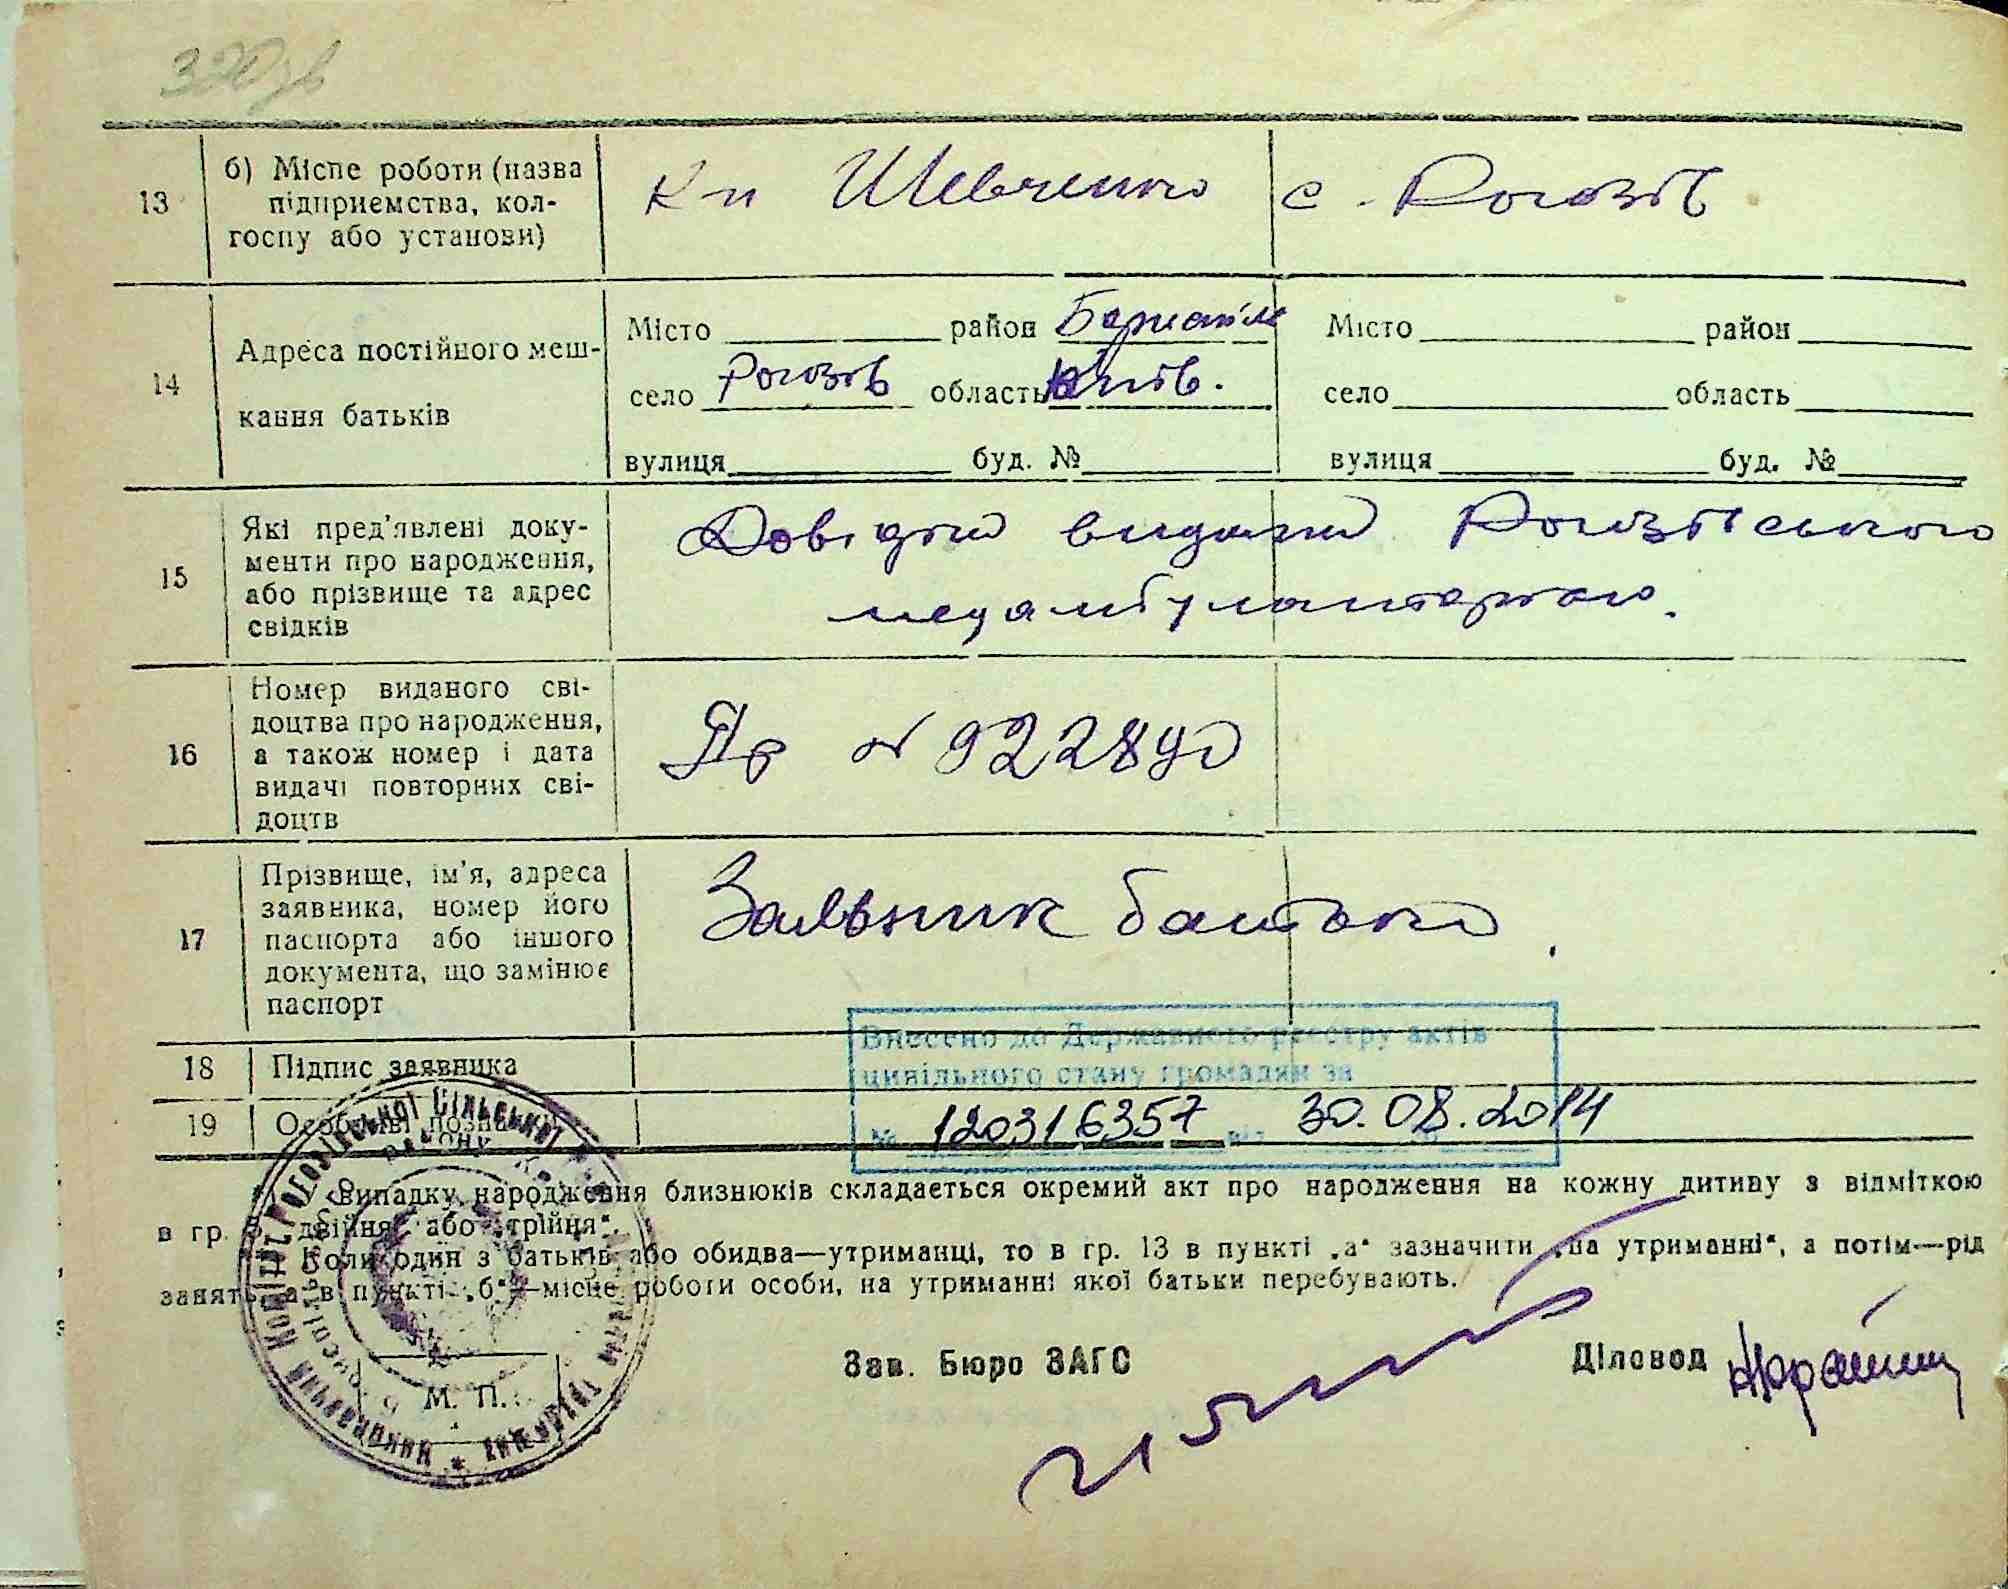 320зв
13 б) Місце роботи (назва підприємства, кол-госпу або установи) К-п Шевченко с. Рогозів
14 Адреса постійного меш-кання батьків
Місто район Бориспіль Місто район
село Рогозів область Київ. село область
вулиця буд. № вулиця буд. №
15 Які пред'явлені доку-менти про народження, або прізвище та адрес свідків
Довідки видани Рогозівського
медамбулаторією.
16 Номер виданого сві-доцтва про народження, а також номер і дата видачі повторних сві-доцтв
№ 922890
17 Прізвище, ім'я, адреса заявника, номер його паспорта або іншого документа, що замінює паспорт
Заявник батько.
Внесено до Державного реєстру актів
цивільного стану громадян за
18 Підпис заявника
19 Особливі позначки
№ 120316357 від 30.08.2014
У випадку народження близнюків складається окремий акт про народження на кожну дитину з відміткою
в гр. „двійня“ або „трійня“.
Коли один з батьків або обидва—утриманці, то в гр. 13 в пункті „а“ зазначити „на утриманні“, а потім—рід
занять, а в пункті „б“—місце роботи особи, на утриманні якої батьки перебувають.
Зав. Бюро ЗАГС Діловод
М. П.
Виконавчий комітет Рогозівської сільської